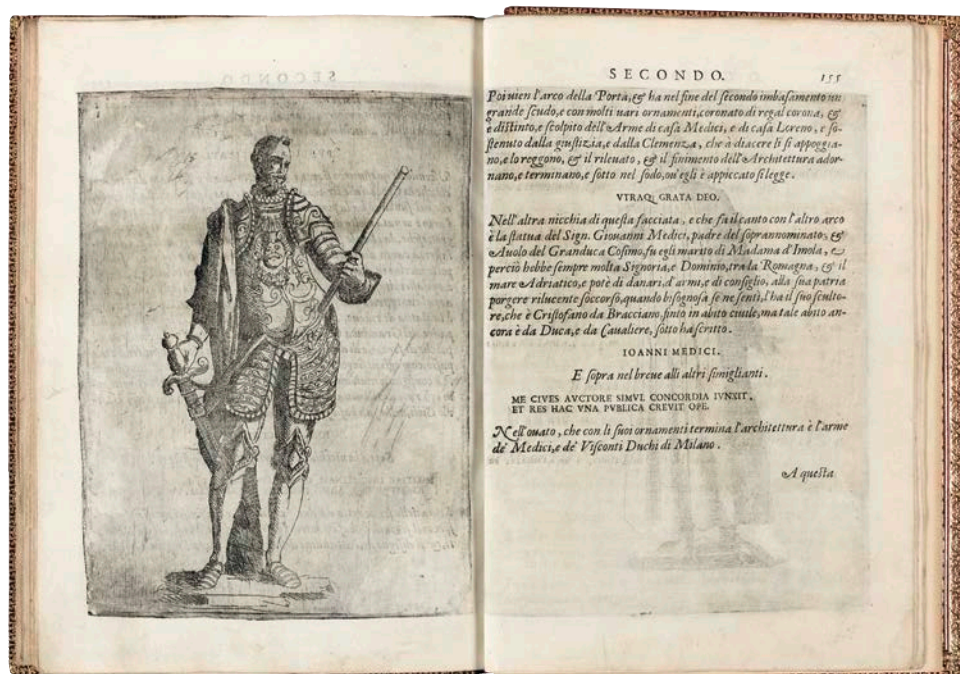 SECONDO. 155
Poi uien l'arco della Porta, & ha nel fine del secondo imbasamento un
grande scudo, e con molti uari ornamenti, coronato di regal corona, &
è distinto, e scolpito dell'Arme di casa Medici, e di casa Loreno, e so-
stenuto dalla giustizia, e dalla Clemenza, che à diacere li si appoggia-
no, e lo reggono, & il rileuato, & il finimento dell'Architettura ador-
nano, e terminano, e sotto nel sodo, ou'egli è appiccato si legge.
VTRAQ; GRATA DEO.
Nell'altra nicchia di questa facciata, e che fa il canto con l'altro arco
è la statua del Sign. Giouanni Medici, padre del soprannominato, &
Auolo del Granduca Cosimo, fu egli marito di Madama d'Imola, e
perciò hebbe sempre molta Signoria, e Dominio, tra la Romagna, & il
mare Adriatico, e potè di danari, d'armi, e di consiglio, alla sua patria
porgere rilucente soccorso, quando bisognosa se ne sentì, l'ha il suo sculto-
re, che è Cristofano da Bracciano, finto in abito ciuile, ma tale abito an-
cora è da Duca, e da Caualiere, sotto ha scritto.
IOANNI MEDICI.
E sopra nel breue alli altri simiglianti.
ME CIVES AVCTORE SIMVL CONCORDIA IVNXIT,
ET RES HAC VNA PVBLICA CREVIT OPE.
Nell'ouato, che con li suoi ornamenti termina l'architettura è l'arme
de' Medici, e de' Visconti Duchi di Milano.
A questa